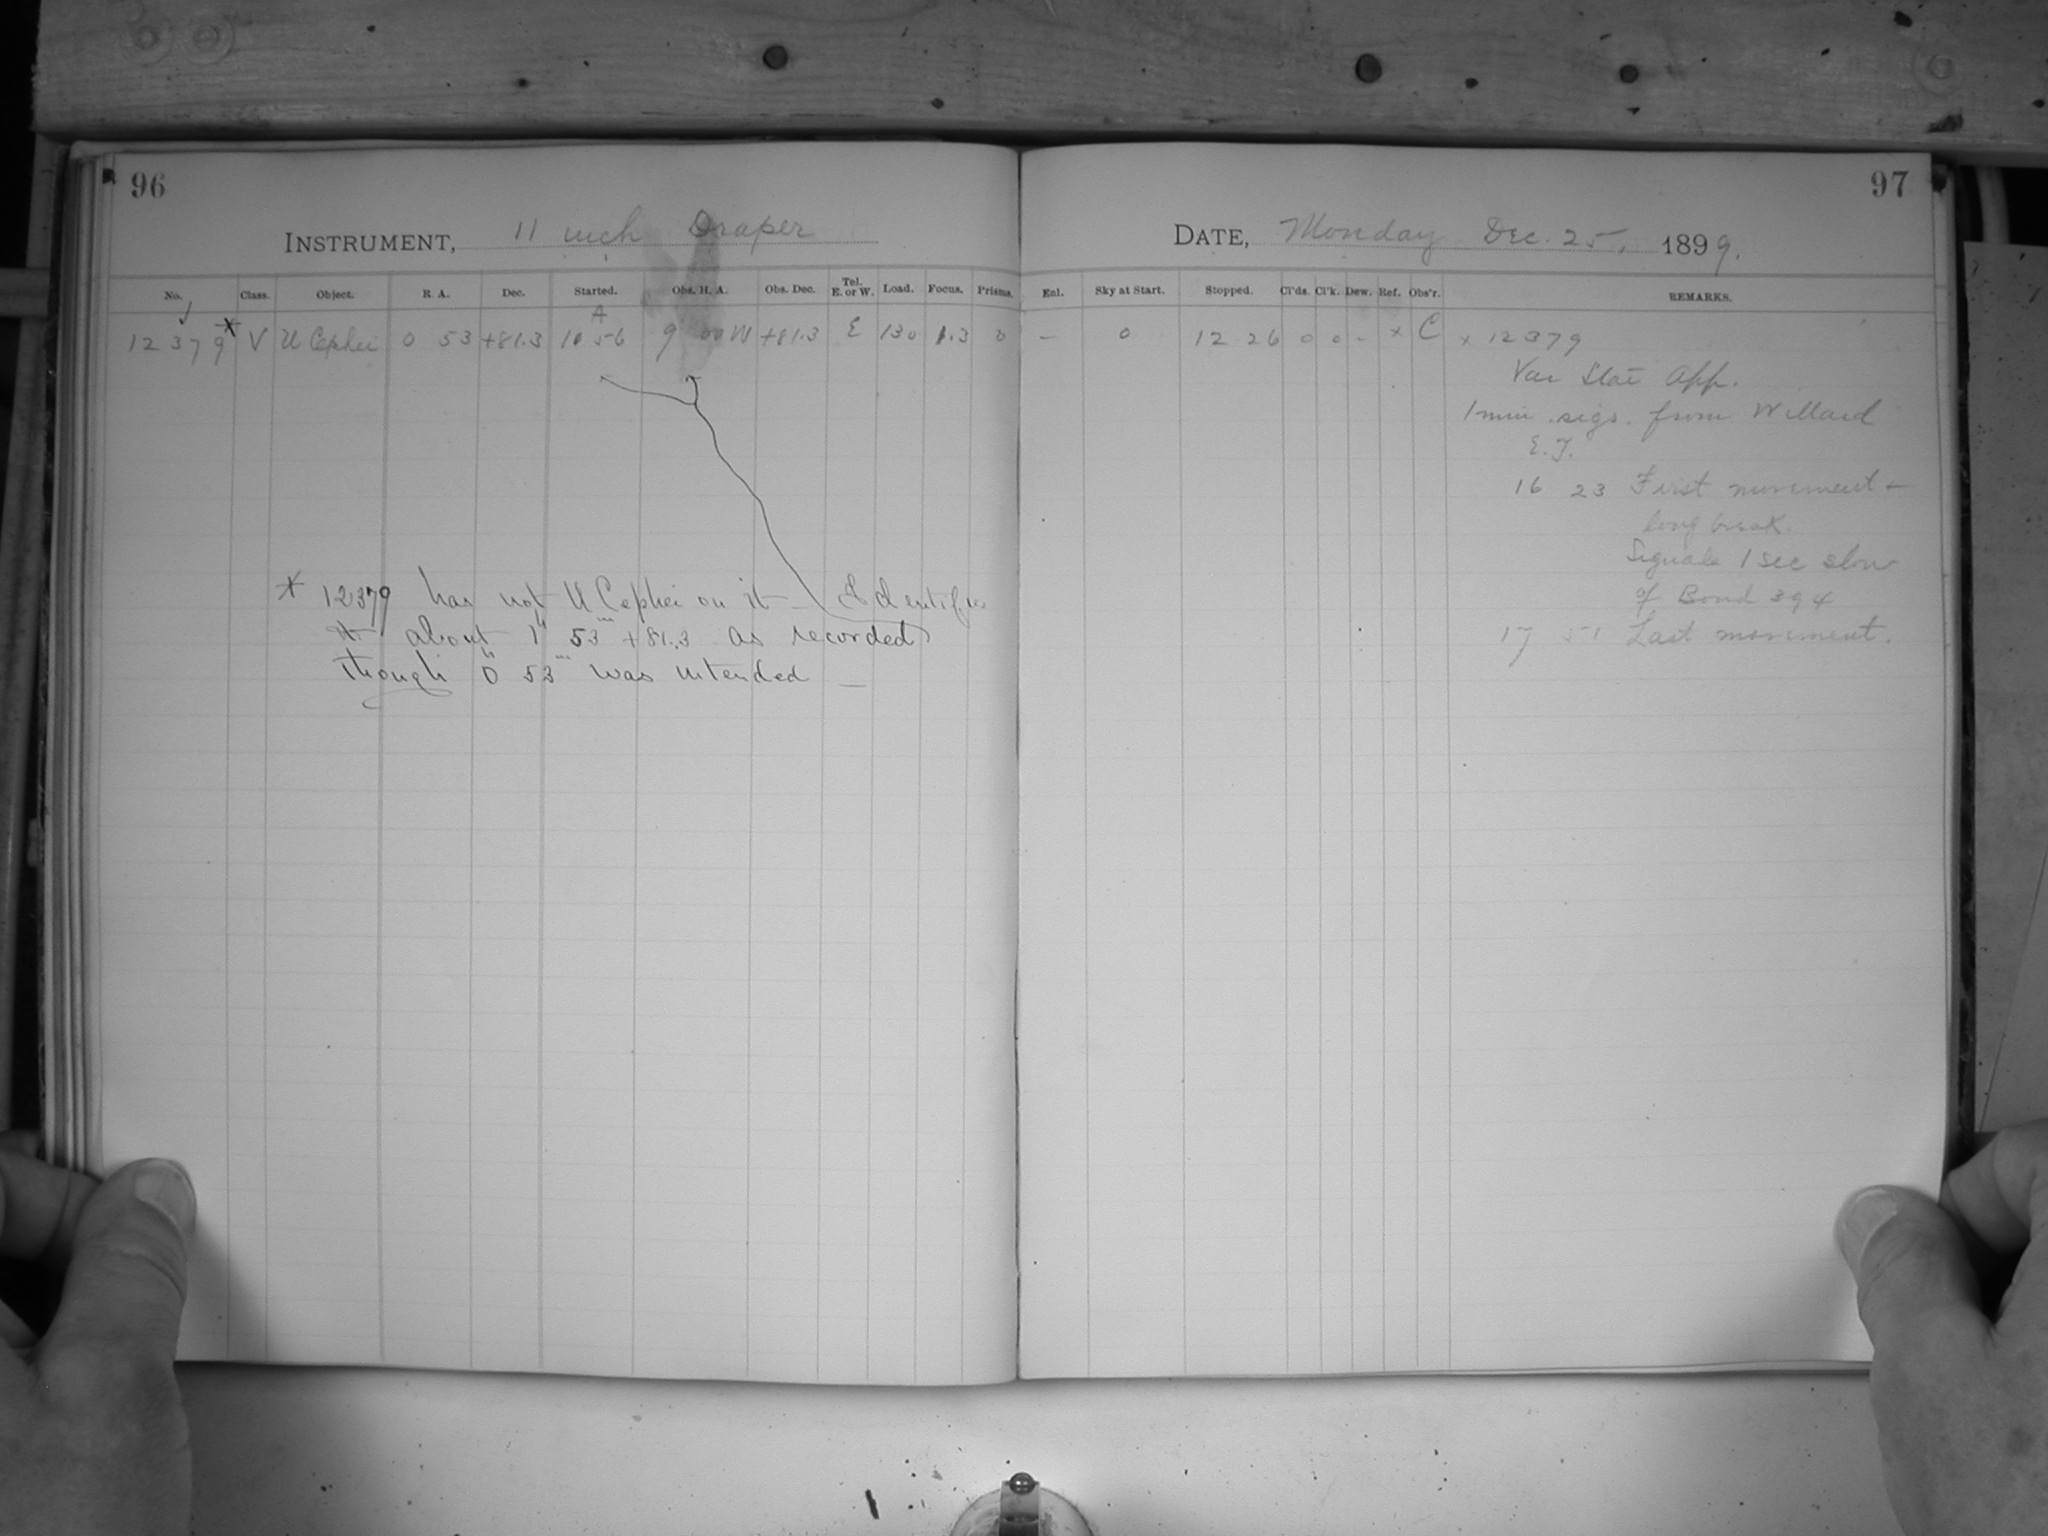 96
INSTRUMENT, 11 inch Draper
No. Class. Object. R. A. Dec. Started. Obs. H. A. Obs. Dec. Tel. E. or W. Load. Focus. Prisms.
A
12379* V U Cephei 0 53 +81.3 10 56 9 00 W +81.3 E 130 1.3 0
* 12379 has not U Cephei on it — Identifies
it about 1h 53m +81.3 as recorded
though 0h 53m was intended —
97
DATE, Monday Dec. 25, 1899.
Enl. Sky at Start. Stopped. Cl'ds. Cl'k. Dew. Ref. Obs'r. REMARKS.
— 0 12 26 0 0 - x C x 12379
Var Star App.
1 min. sigs. from Willard
E.T.
16 23 First movement -
long break.
Signals 1 sec slow
of Bond 394
17 51 Last movement.